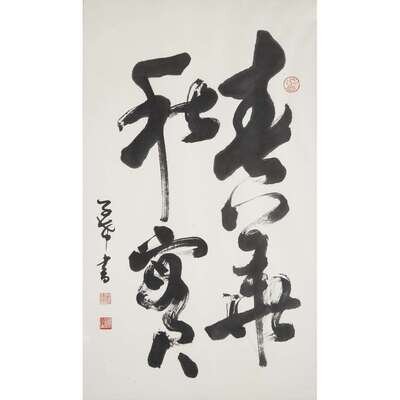 春華
秋實
書